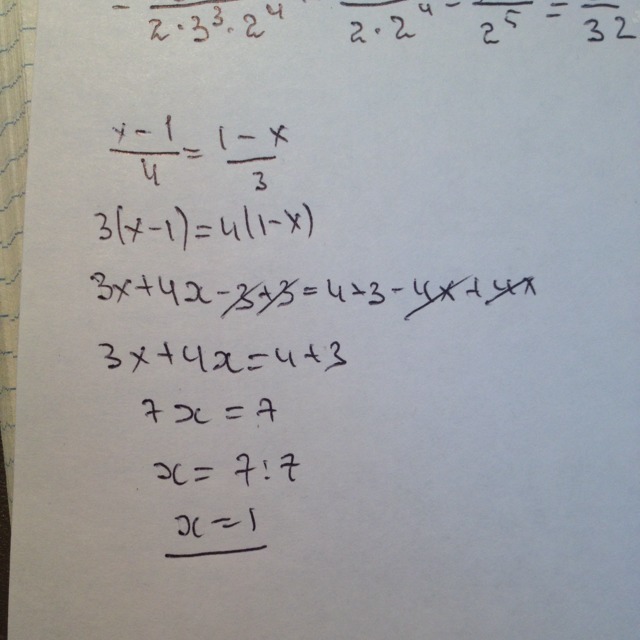 2·3³·2⁴ 2·2⁴ 2⁵ = 32
x-1/4 = 1-x/3
3(x-1)=4(1-x)
3x+4x-3+3=4+3-4x+4x
3x+4x=4+3
7x=7
x=7:7
x=1